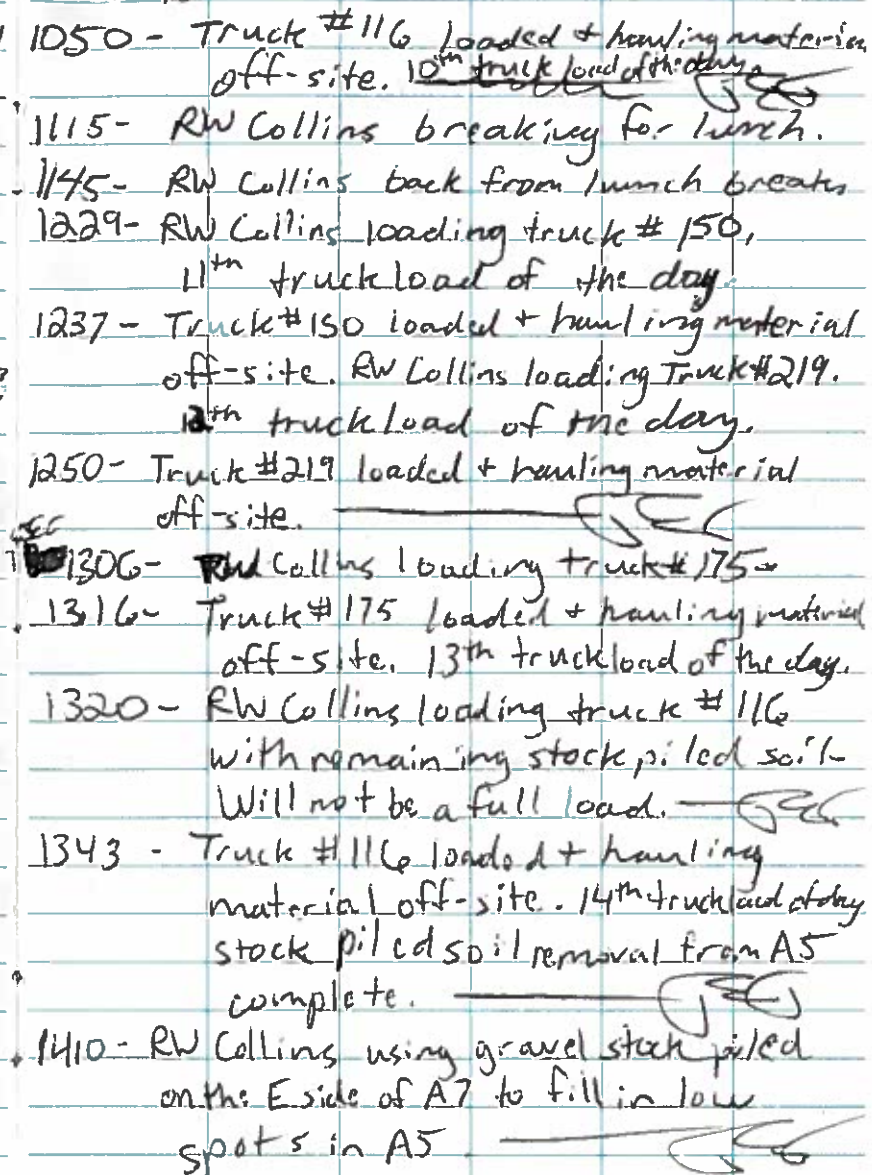 1050 - Truck #116 loaded + hauling material
off-site. 10th truck load of the day.
1115- RW Collins breaking for lunch.
1145- RW Collins back from lunch break
1229- RW Collins loading truck # 150,
11th truckload of the day.
1237 - Truck #150 loaded + hauling material
off-site. RW Collins loading Truck #219.
12th truckload of the day.
1250- Truck #219 loaded + hauling material
off-site.
1306- RW Collins loading truck # 175-
1316- Truck # 175 loaded + hauling material
off-site. 13th truckload of the day.
1320- RW Collins loading truck # 116
with remaining stock piled soil-
Will not be a full load.
1343 - Truck #116 loaded + hauling
material off-site. 14th truckload of day
stock piled soil removal from A5
complete.
1410- RW Collins using gravel stock piled
on the E side of A7 to fill in low
spots in A5